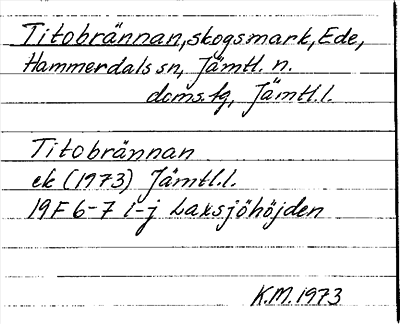 Titobrännan, skogsmark, Ede,
Hammerdals sn, Jämtl. n.
doms.fg, Jämtl.l.
Titobrännan
ek (1973) Jämtl.l.
19F 6-7 i-j Laxsjöhöjden
K.M. 1973